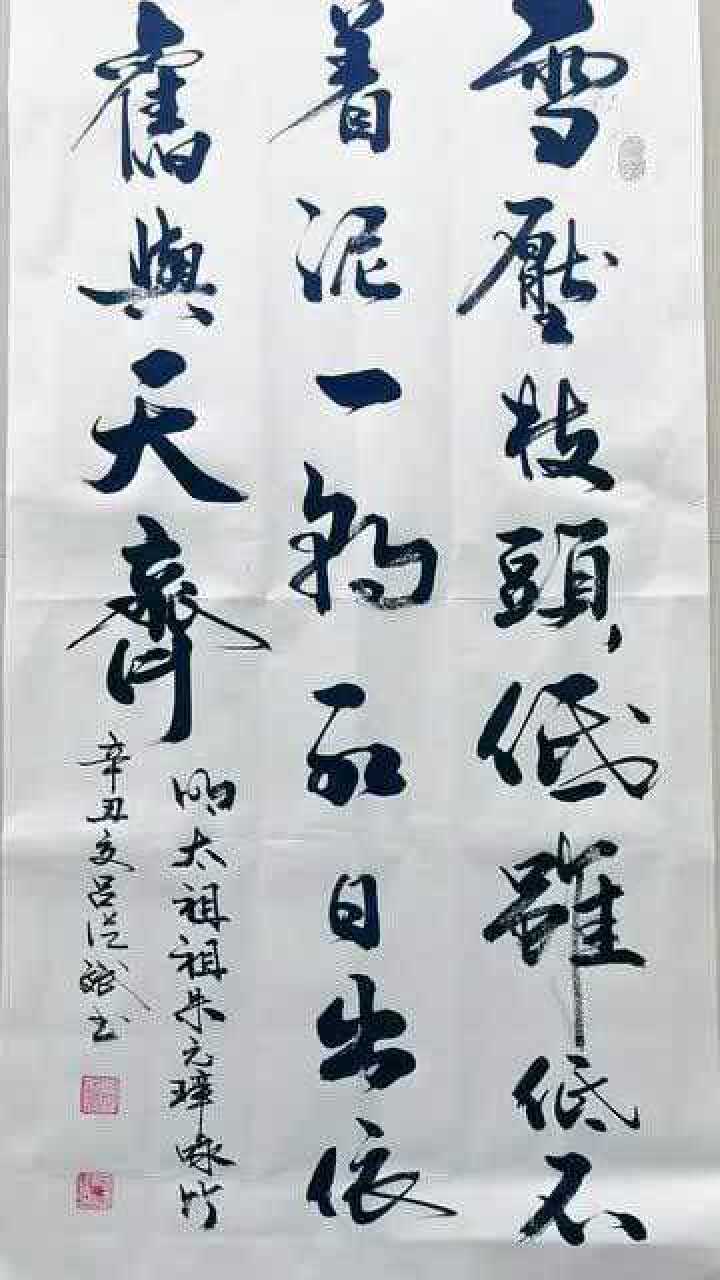 雪壓枝頭低雖低不
着泥一朝紅日出依
舊與天齊
明太祖祖朱元璋咏竹
辛丑夏吕從斌书